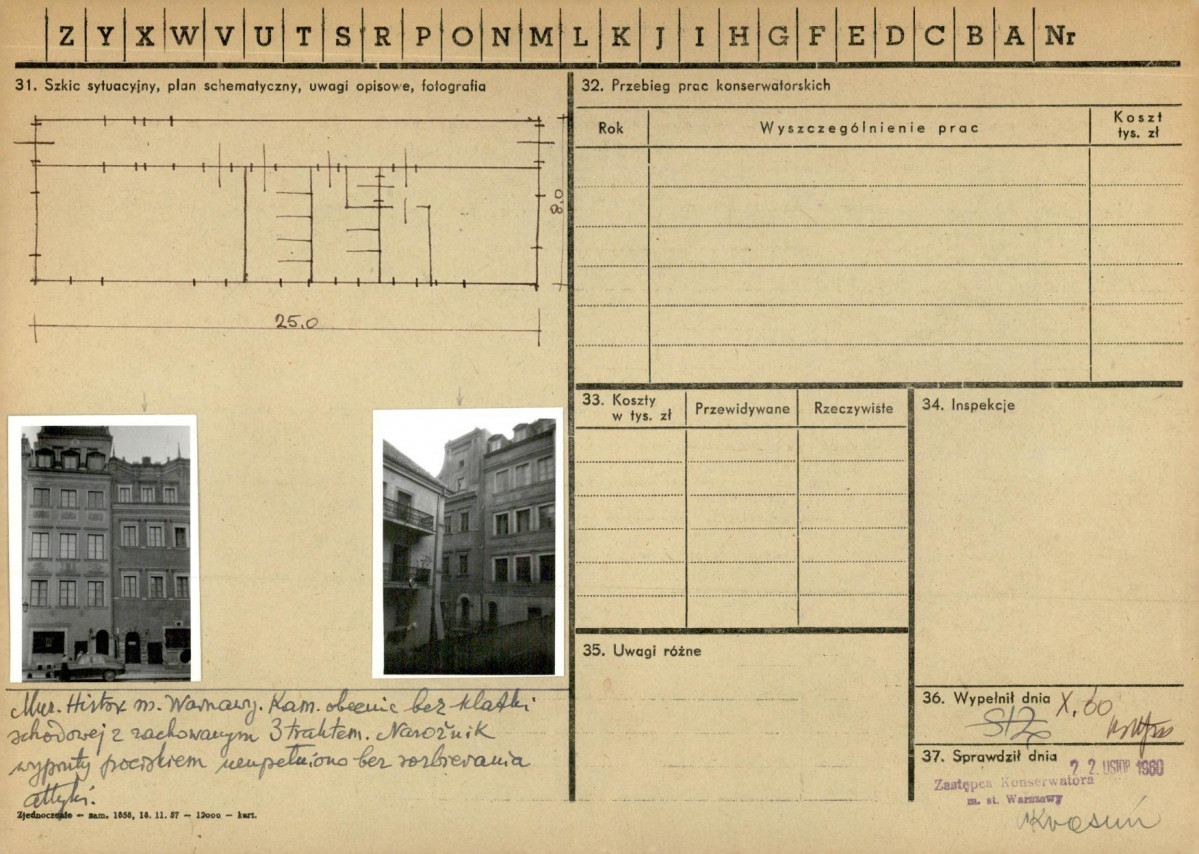 Z Y X W V U T S R P O N M L K J I H G F E D C B A Nr
31. Szkic sytuacyjny, plan schematyczny, uwagi opisowe, fotografia
8.0
25,0
Muz. Histor m. Warszawy. Kam. obecnie bez klatki
schodowej z zachowanym 3 traktem. Narożnik
wypruty pociskiem uzupełniono bez rozbierania
attyki.
Zjednoczenie — zam. 1656, 18. 11. 57 — 12000 — kart.
32. Przebieg prac konserwatorskich
Rok
Wyszczególnienie prac
Koszt
tys. zł
33. Koszty
w tys. zł
Przewidywane
Rzeczywiste
34. Inspekcje
35. Uwagi różne
36. Wypełnił dnia X. 60
37. Sprawdził dnia
2 2. LISTOP 1960
Zastępca Konserwatora
m. st. Warszawy